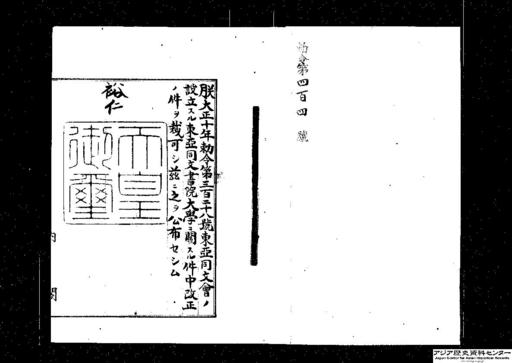 勅令第四百四號
朕大正十年勅令第三百二十八號東亞同文會ノ
設立スル東亞同文書院大學ニ關スル件中改正
ノ件ヲ裁可シ茲ニ之ヲ公布セシム
裕仁
天皇
御璽
内閣
アジア歴史資料センター
Japan Center for Asian Historical Records